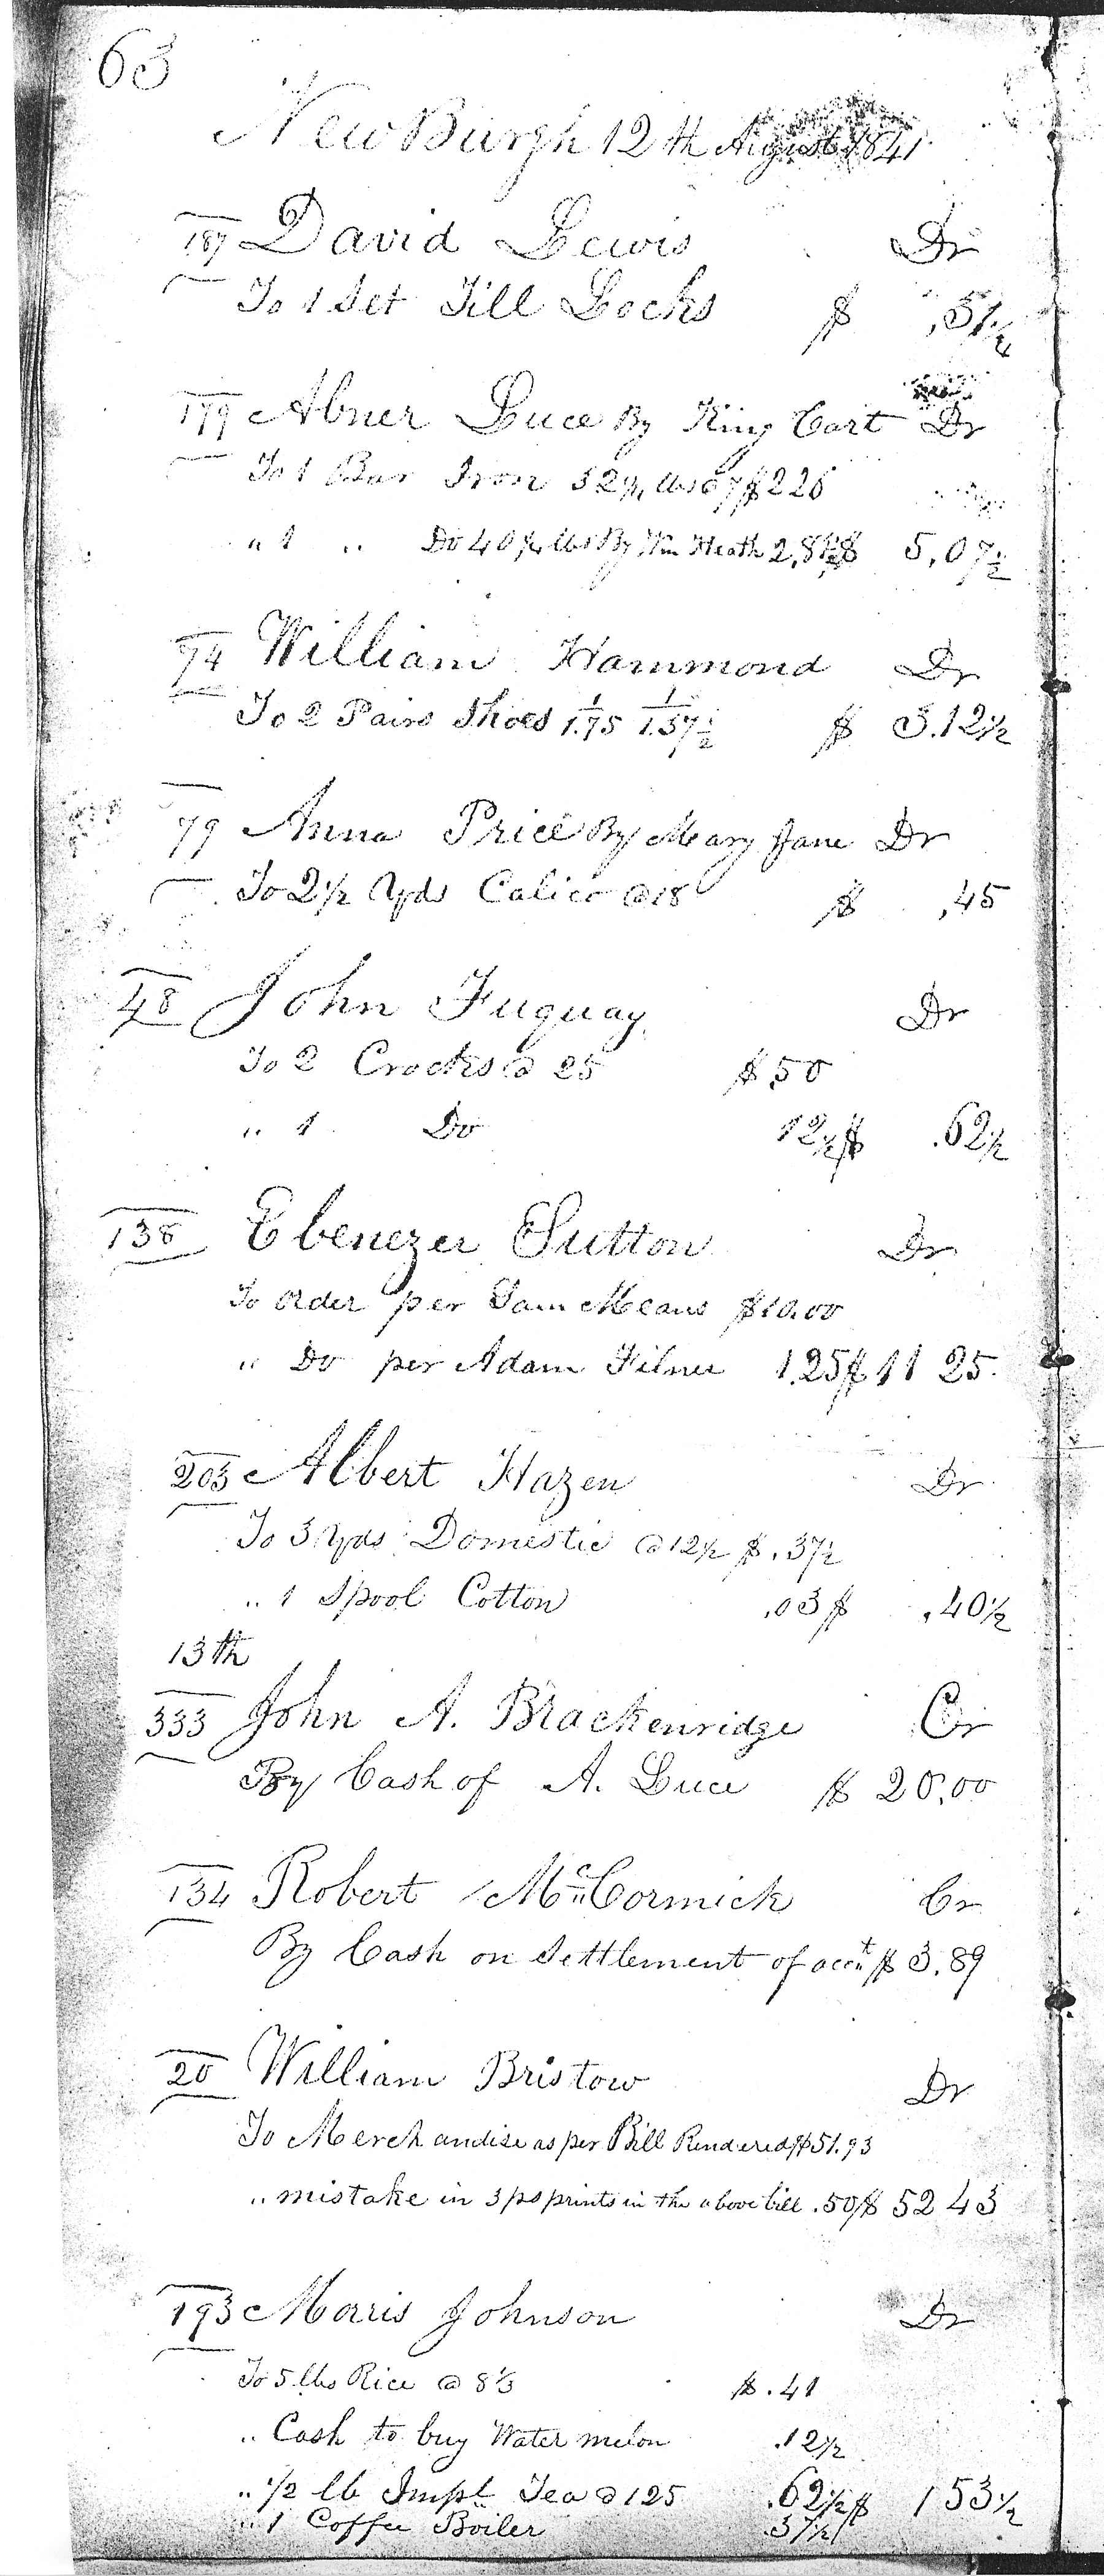 63
NewBurgh 12th August 1841
187 David Lewis Dr
To 1 Set Till Locks $ ,51¼
179 Abner Luce By King Cart Dr
To 1 Bar Iron 32¼ lbs @ 7 $2 26
" 1 " Do 40¼ lbs By Wm Heath 2,81½ $ 5,07½
74 William Hammond Dr
To 2 Pairs Shoes 1/1.75 1/1.37½ $ 3.12½
79 Anna Price By Mary Jane Dr
To 2½ Yds Calico @ 18 $ ,45
48 John Fuquay Dr
To 2 Crocks @ 25 $ 50
" 1 Do 12½ $ .62½
138 Ebenezer Sutton Dr
To order per Sam Means $10.00
" Do per Adam Filner 1.25 $ 11 25
203 Albert Hazen Dr
To 3 Yds Domestic @ 12½ $ .37½
" 1 Spool Cotton .03 $ .40½
13th
333 John A. Brackenridge Cr
By Cash of A. Luce $ 20,00
134 Robert McCormick Cr
By Cash on Settlement of acct $ 3.89
20 William Bristow Dr
To Merchandise as per Bill Rendered $51.93
" mistake in 3 ps prints in the above bill .50 $ 52 43
193 Morris Johnson Dr
To 5 lbs Rice @ 8⅓ $ .41
" Cash to buy Water melon .12½
" ½ lb Impl Tea @ 125 .62½ $ 1 53½
" 1 Coffee Boiler .37½